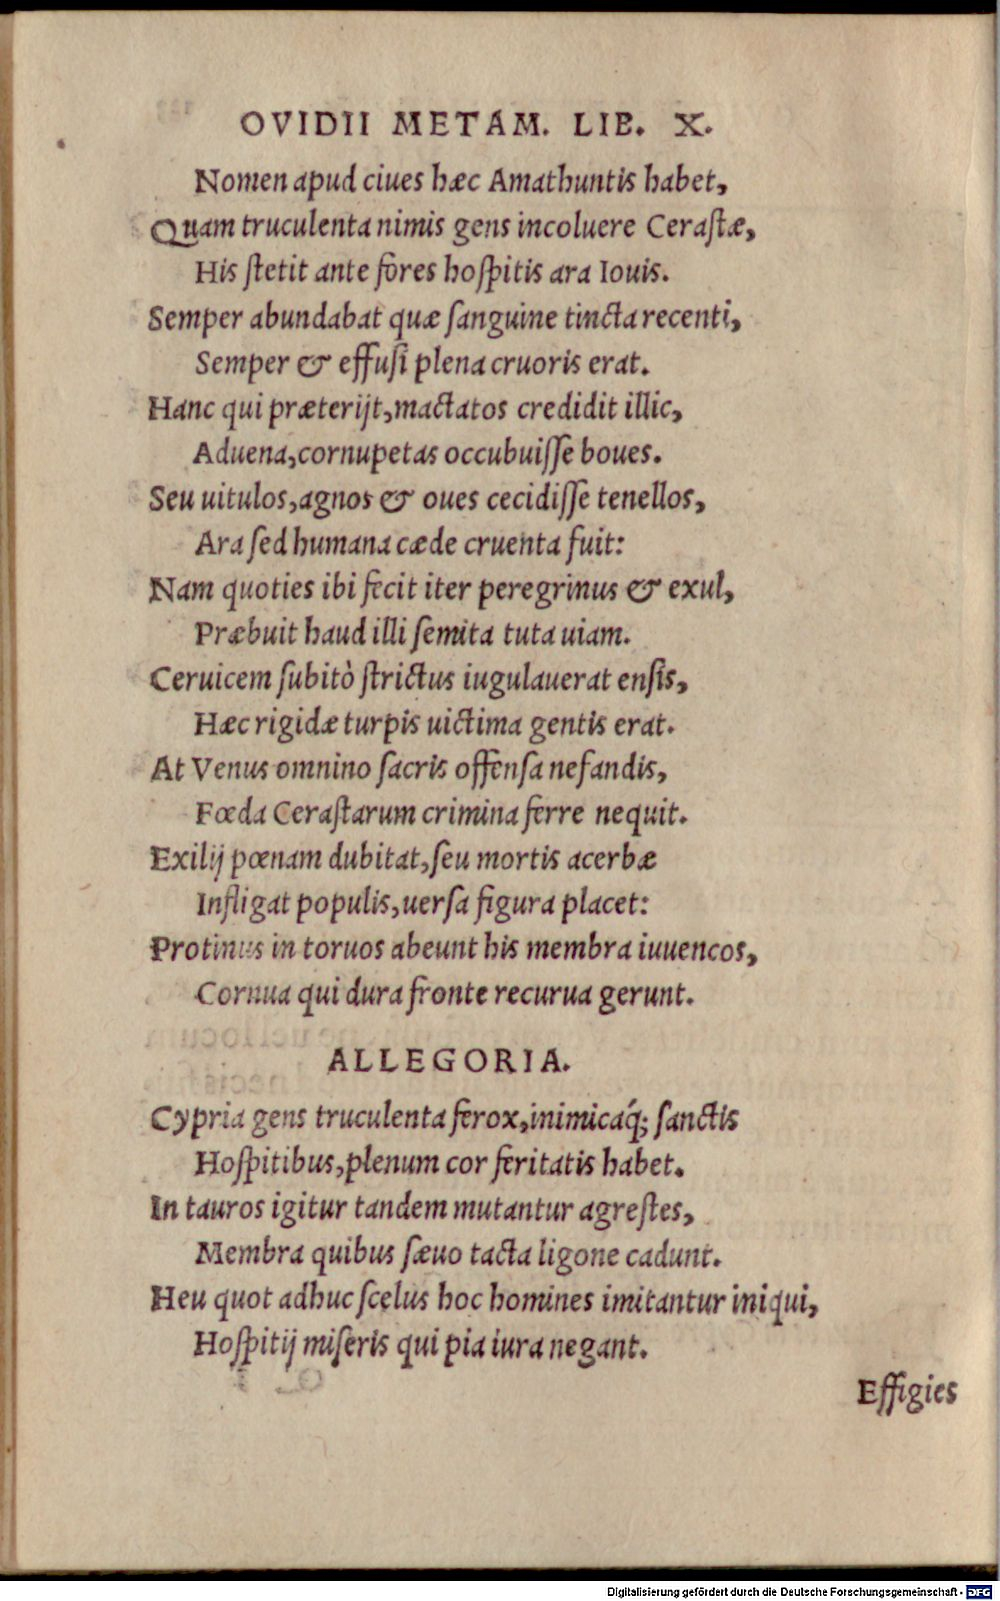 OVIDII METAM. LIB. X.
Nomen apud ciues hæc Amathuntis habet,
Quam truculenta nimis gens incoluere Cerastæ,
His stetit ante fores hospitis ara Iouis.
Semper abundabat quæ sanguine tincta recenti,
Semper & effusi plena cruoris erat.
Hanc qui præterijt, mactatos credidit illic,
Aduena, cornupetas occubuisse boues.
Seu uitulos, agnos & oues cecidisse tenellos,
Ara sed humana cæde cruenta fuit:
Nam quoties ibi fecit iter peregrinus & exul,
Præbuit haud illi semita tuta uiam.
Ceruicem subitò strictus iugulauerat ensis,
Hæc rigidæ turpis uictima gentis erat.
At Venus omnino sacris offensa nefandis,
Fœda Cerastarum crimina ferre nequit.
Exilij pœnam dubitat, seu mortis acerbæ
Infligat populis, uersa figura placet:
Protinus in toruos abeunt his membra iuuencos,
Cornua qui dura fronte recurua gerunt.
ALLEGORIA.
Cypria gens truculenta ferox, inimicaq́; sanctis
Hospitibus, plenum cor feritatis habet.
In tauros igitur tandem mutantur agrestes,
Membra quibus sæuo tacta ligone cadunt.
Heu quot adhuc scelus hoc homines imitantur iniqui,
Hospitij miseris qui pia iura negant.
Effigies
Digitalisierung gefördert durch die Deutsche Forschungsgemeinschaft - DFG